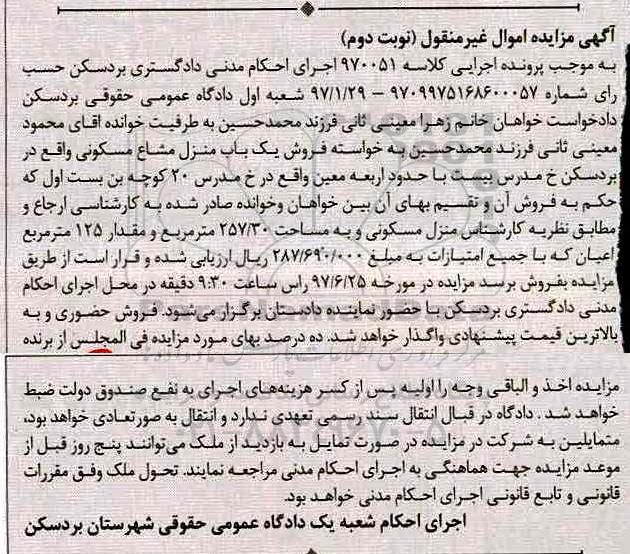 آگهی مزایده اموال غیرمنقول (نوبت دوم)
به موجب پرونده اجرایی کلاسه ۹۷۰۰۵۱ اجرای احکام مدنی دادگستری بردسکن حسب
رای شماره ۹۷۰۹۹۷۵۱۶۸۶۰۰۰۵۷ – ۹۷/۱/۲۹ شعبه اول دادگاه عمومی حقوقی بردسکن
دادخواست خواهان خانم زهرا معینی ثانی فرزند محمدحسین به طرفیت خوانده اقای محمود
معینی ثانی فرزند محمدحسین به خواسته فروش یک باب منزل مشاع مسکونی واقع در
بردسکن خ مدرس بیست با حدود اربعه معین واقع در خ مدرس ۲۰ کوچه بن بست اول که
حکم به فروش آن و تقسیم بهای آن بین خواهان وخوانده صادر شده به کارشناسی ارجاع و
مطابق نظریه کارشناس منزل مسکونی و به مساحت ۲۵۷/۳۰ مترمربع و مقدار ۱۲۵ مترمربع
اعیان که با جمیع امتیازات به مبلغ ۲۸۷/۶۹۰/۰۰۰ ریال ارزیابی شده و قرار است از طریق
مزایده بفروش برسد مزایده در مورخه ۹۷/۶/۲۵ راس ساعت ۹:۳۰ دقیقه در محل اجرای احکام
مدنی دادگستری بردسکن با حضور نماینده دادستان برگزار می‌شود. فروش حضوری و به
بالاترین قیمت پیشنهادی واگذار خواهد شد. ده درصد بهای مورد مزایده فی المجلس از برنده
مزایده اخذ و الباقی وجه را اولیه پس از کسر هزینه‌های اجرای به نفع صندوق دولت ضبط
خواهد شد. دادگاه در قبال انتقال سند رسمی تعهدی ندارد و انتقال به صورتعادی خواهد بود،
متمایلین به شرکت در مزایده در صورت تمایل به بازدید از ملک می‌توانند پنج روز قبل از
موعد مزایده جهت هماهنگی به اجرای احکام مدنی مراجعه نمایند. تحول ملک وفق مقررات
قانونی و تابع قانونی اجرای احکام مدنی خواهد بود.
اجرای احکام شعبه یک دادگاه عمومی حقوقی شهرستان بردسکن